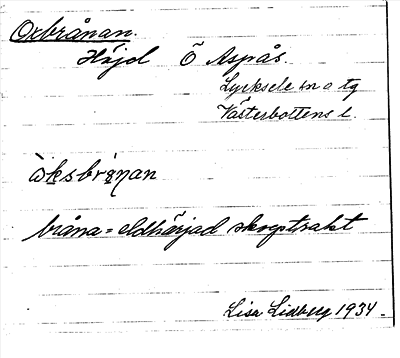 Oxbrånan.
Höjd Ö Aspås.
Lycksele sn o tg
Västerbottens l.
bråna = eldhärjad skogstrakt
Lisa Lidberg 1934.